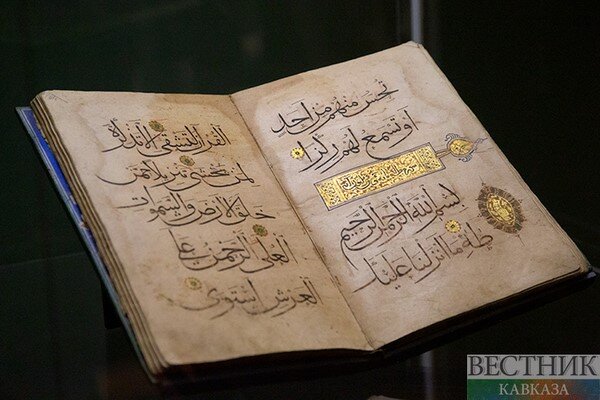 تحس منهم من احد
او تسمع لهم ركزا
بسم الله الرحمن الرحيم
طه ما انزلنا عليك
القران لتشقى الا تذكرة
لمن يخشى تنزيلا ممن
خلق الارض والسموت
العلى الرحمن على
العرش استوى
ВЕСТНИК
КАВКАЗА